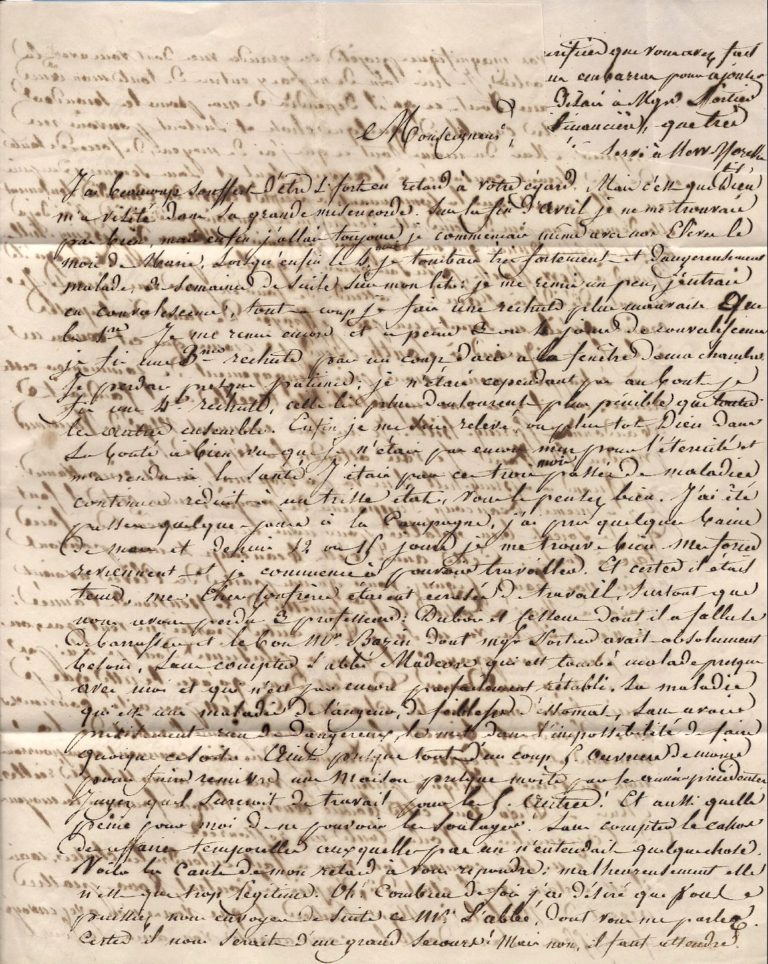 que vous avez fait
un embarras pour ajouter
à Mgr Portier
financière, que très
Monseigneur,
J'ai beaucoup souffert d'être si fort en retard à votre égard. Mais c'est que Dieu
m'a visité dans sa grande miséricorde. Sur la fin d'avril je ne me trouvais
pas bien, mais enfin j'allais toujours, je commençais même avec nos Elèves le
mois de Marie. Lorsqu'enfin le 4 je tombais très fortement et dangereusement
malade, de semaines de suite sur mon lit: je me remis un peu, j'entrais
en convalescence, tout à coup je fais une rechute plus mauvaise que
la 1re. Je me remis encore et à peine 3 ou 4 jours de convalescence
je fis une 3me rechute par un coup d'air à la fenêtre de ma chambre.
Je perdais presque patience; je n'étais cependant pas au bout je
fis une 4e rechute, celle-là plus douloureuse plus pénible que toutes
les autres ensemble. Enfin je me suis relevé, ou plus tôt Dieu dans
sa bonté a bien vu que je n'étais pas encore mûr pour l'éternité et
m'a rendu à la santé. J'étais par ces trois mois passés de maladies
continues réduit à un triste état, vous le pensez bien. J'ai été
passer quelques jours à la Campagne, j'ai pris quelques bains
de mer et depuis 12 ou 15 jours je me trouve bien mes forces
reviennent et je commence à pouvoir travailler. Et certes il était
temps, mes chers confrères étaient écrasés de travail, surtout que
nous avons perdu 3 professeurs: Dubos et dont il a fallu se
débarrasser et le bon Mr. Bazin dont mgr Portier avait absolument
besoin, sans compter l'abbé Madeore qui est tombé malade presque
avec moi et qui n'est pas encore parfaitement rétabli. Sa maladie
qui est une maladie de langueur, de faiblesse d'estomac, sans avoir
précisément rien de dangereux, le met dans l'impossibilité de faire
quoique ce soit. Ainsi presque tout d'un coup 5 ouvriers de moins
pour faire revivre une maison presque morte par les années précédentes
Jugez quel surcroit de travail pour les 5 autres! Et aussi quelle
peine pour moi de ne pouvoir les soulager. Sans compter le cahos
des affaires temporelles auxquelles pas un n'entendait quelque chose.
Voilà la cause de mon retard à vous répondre: malheureusement elle
n'est que trop légitime. Oh! Combien de fois j'ai désiré que vous
puissiez nous envoyer de suite ce Mr. L'abbé, dont vous me parlez.
certes il nous serait d'un grand secours! Mais non, il faut attendre.